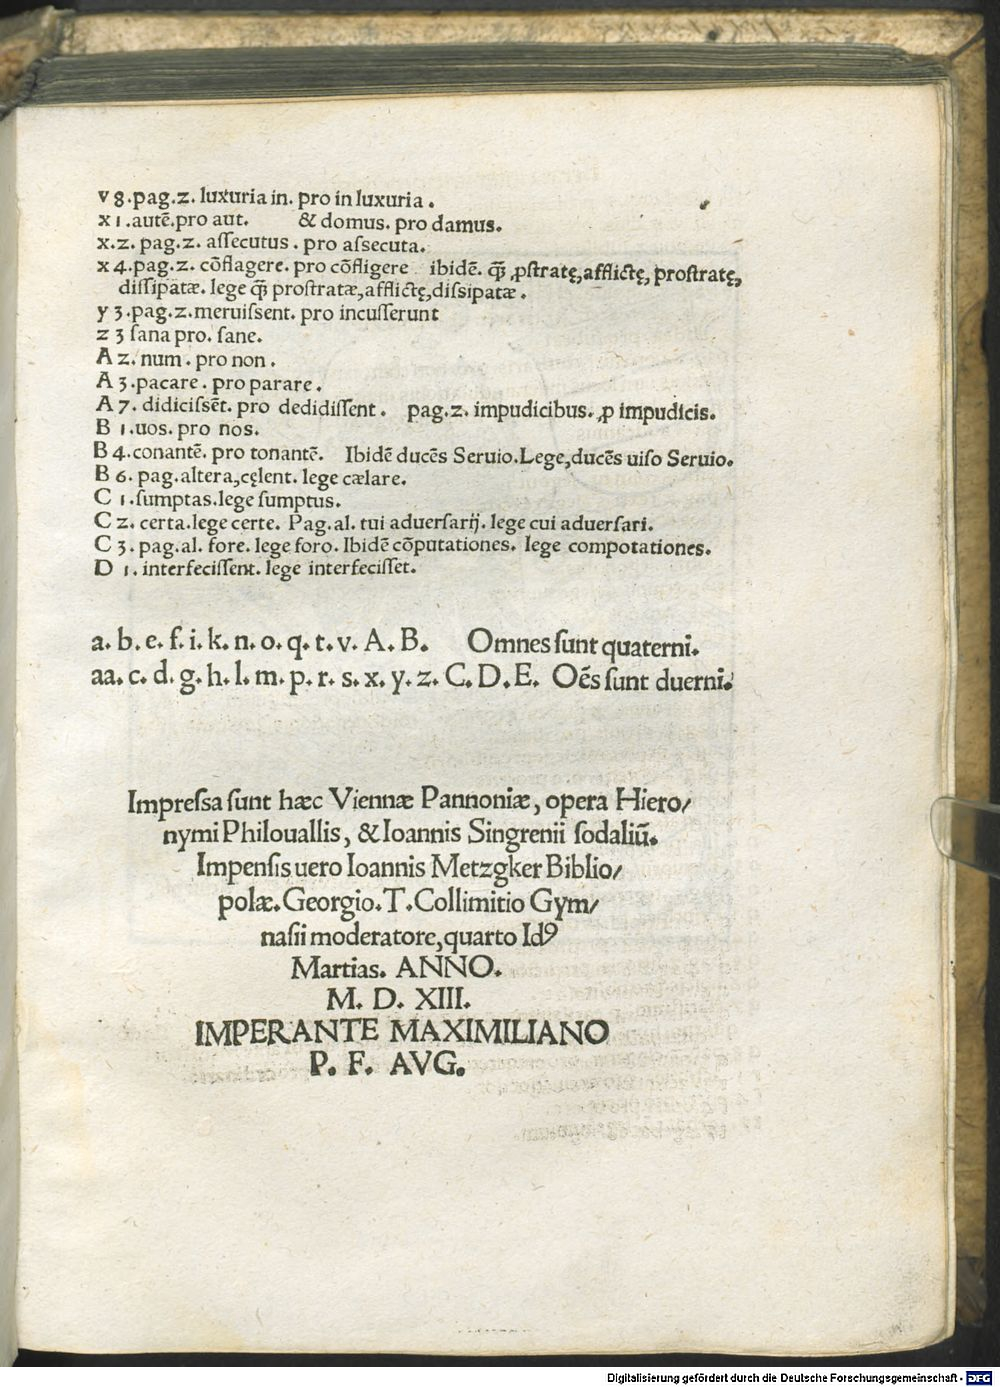 v 8.pag.z. luxuria in. pro in luxuria.
x 1.autē.pro aut. & domus. pro damus.
x.z. pag.z. aſſecutus. pro aſsecuta.
x 4.pag.z. cōflagere. pro cōfligere ibidē. ꝙ̄ ꝓſtratę,afflictę, proſtratę,
diſſipatæ. lege ꝙ̄ proſtratæ,afflictę,diſsipatæ.
y 3.pag.z.meruiſsent. pro incuſſerunt
z 3 ſana pro. ſane.
A z. num. pro non.
A 3.pacare. pro parare.
A 7. didiciſsēt. pro dedidiſſent. pag.z. impudicibus. ꝓ impudicis.
B 1.uos. pro nos.
B 4.conantē. pro tonantē. Ibidē ducēs Seruio.Lege,ducēs uiſo Seruio.
B 6. pag.altera,cęlent. lege cælare.
C 1.ſumptas.lege ſumptus.
C z. certa.lege certe. Pag.al. tui aduerſarij. lege cui aduerſari.
C 3. pag.al. fore. lege foro. Ibidē cōputationes. lege compotationes.
D 1. interfeciſſent. lege interfeciſſet.
a. b. e. f. i. k. n. o. q. t. v. A. B. Omnes ſunt quaterni.
aa. c. d. g. h. l. m. p. r. s. x. y. z. C. D. E. Oēs ſunt duerni.
Impreſsa ſunt hæc Viennæ Pannoniæ, opera Hiero/
nymi Philouallis, & Ioannis Singrenii ſodaliū.
Impenſis uero Ioannis Metzgker Biblio/
polæ. Georgio. T. Collimitio Gym/
naſii moderatore, quarto Idꝰ
Martias. ANNO.
M. D. XIII.
IMPERANTE MAXIMILIANO
P. F. AVG.
Digitalisierung gefördert durch die Deutsche Forschungsgemeinschaft - DFG